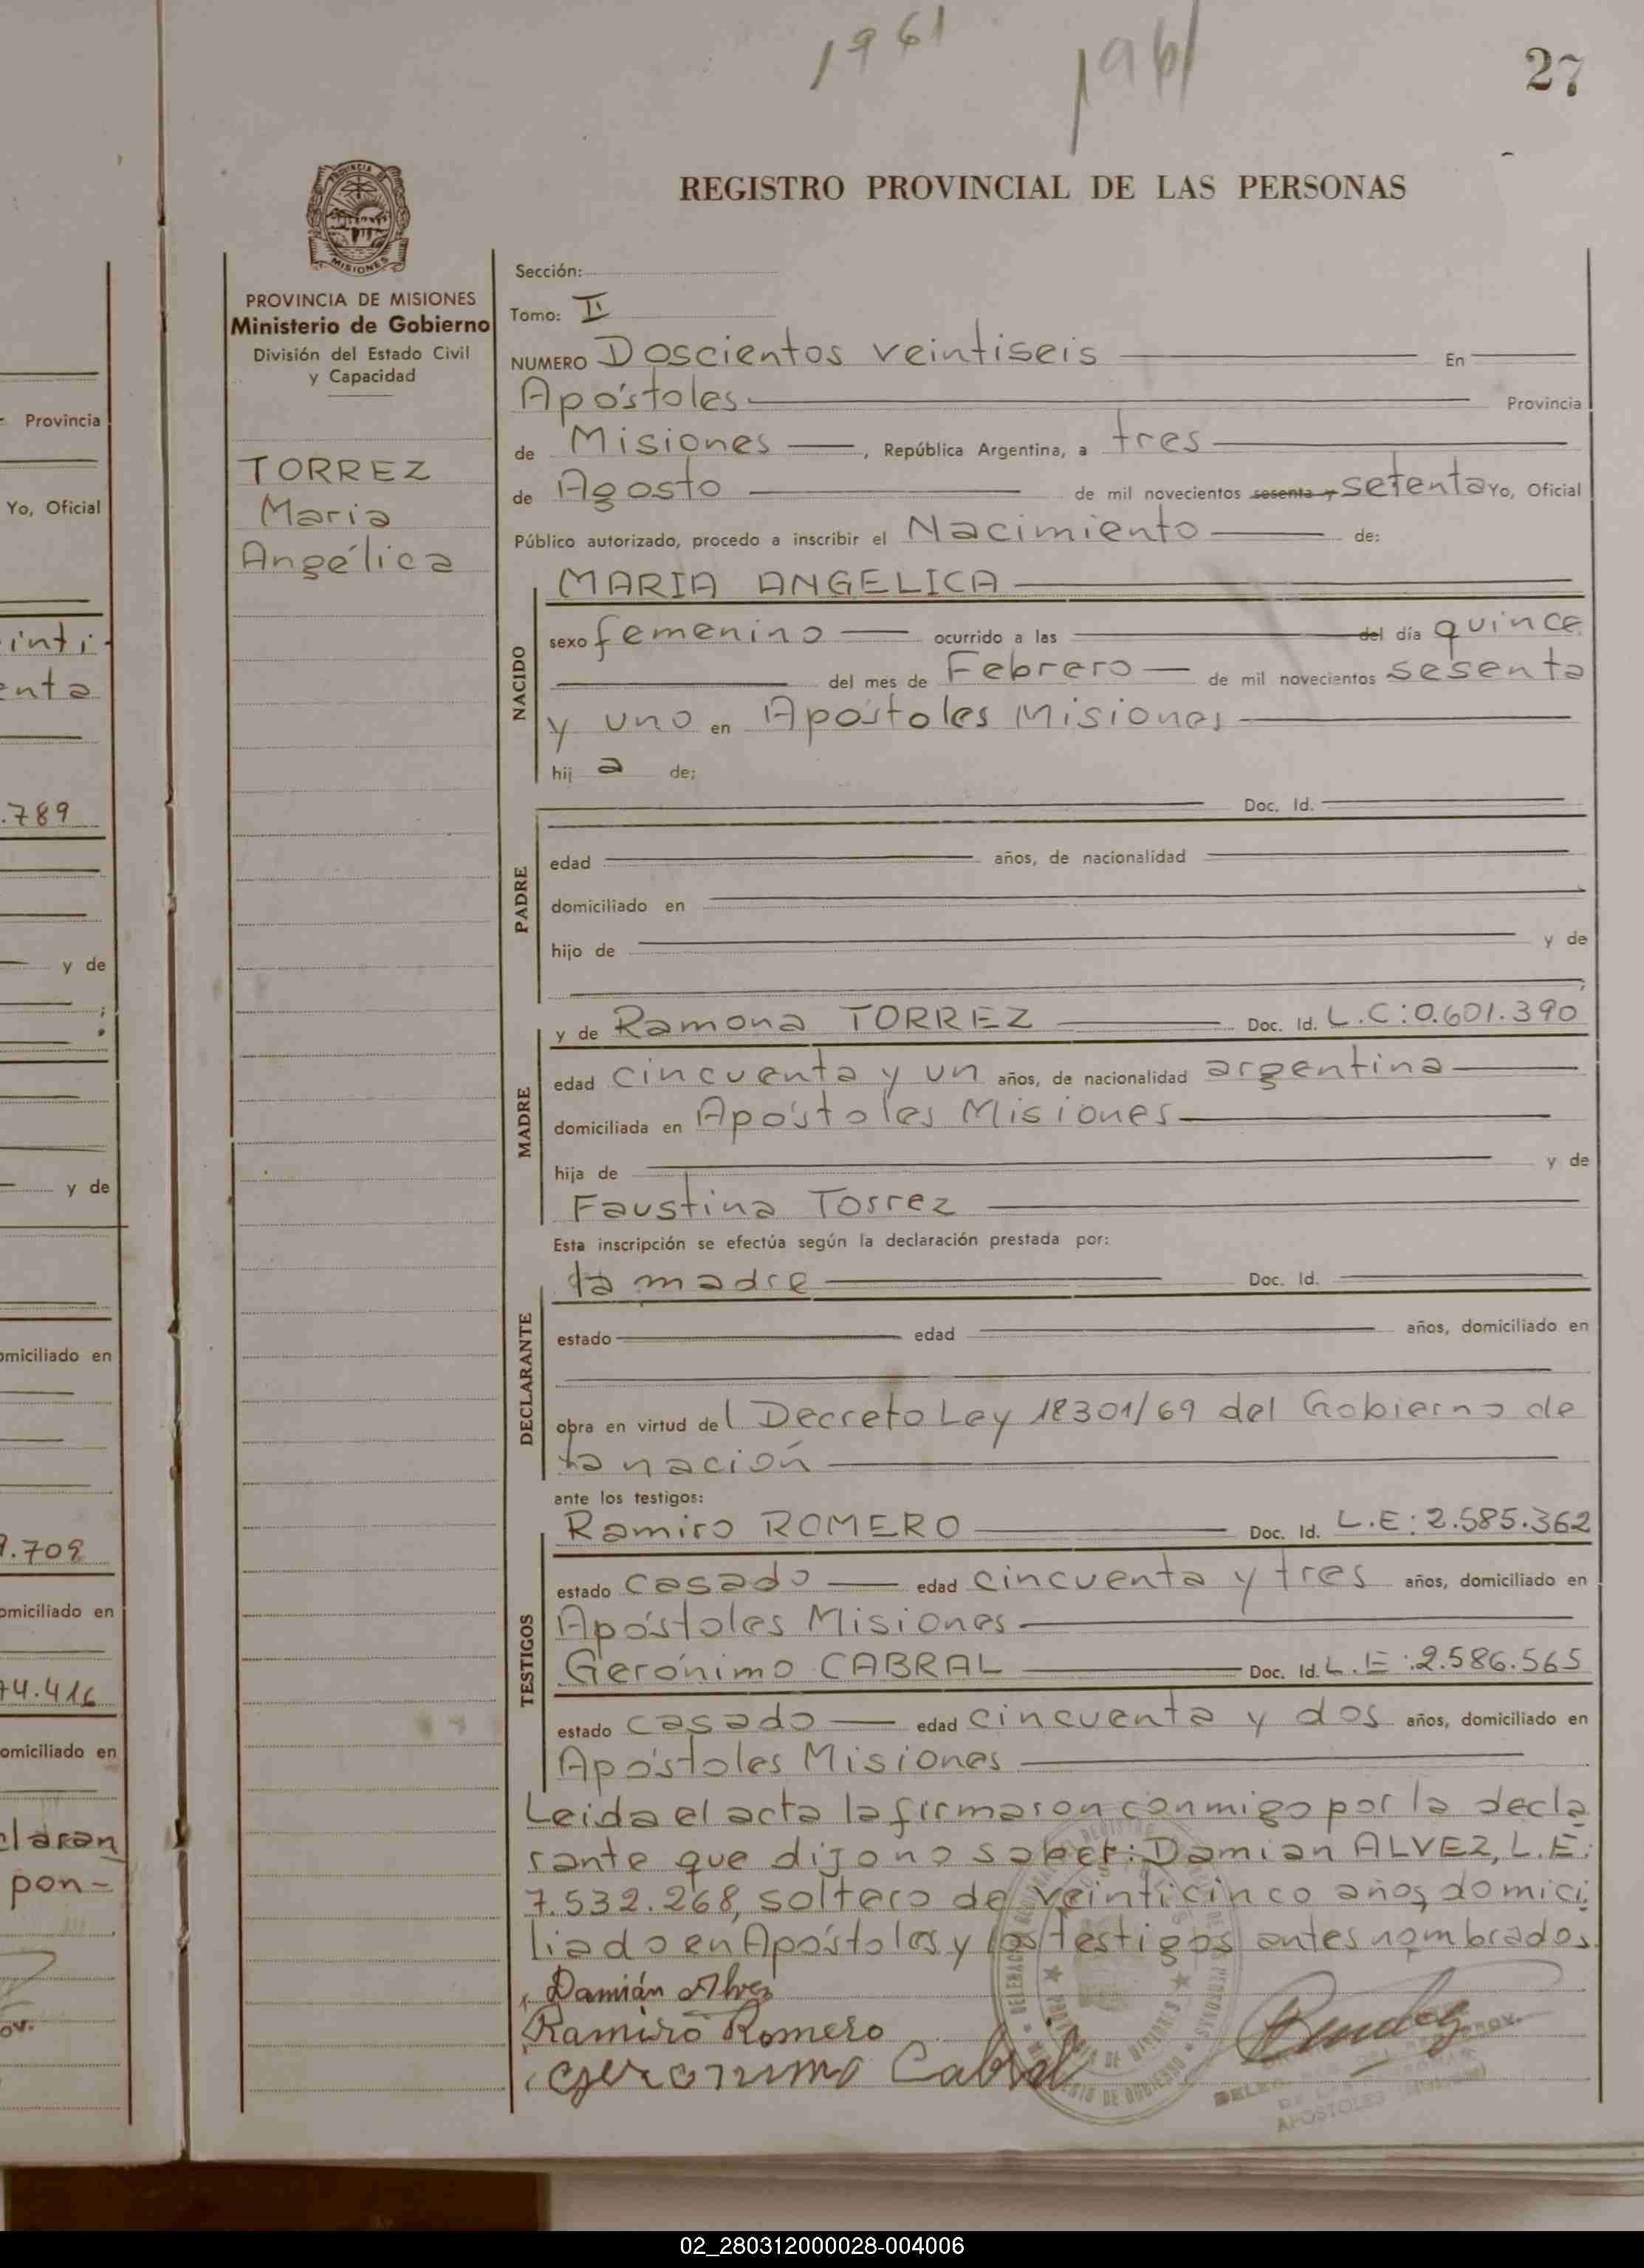 1961 1961
27
REGISTRO PROVINCIAL DE LAS PERSONAS
PROVINCIA DE MISIONES
MISIONES
PROVINCIA DE MISIONES
Ministerio de Gobierno
División del Estado Civil
y Capacidad
TORREZ
Maria
Angélica
Sección:
Tomo: II
NUMERO Doscientos veintiseis En
Apóstoles Provincia
de Misiones, República Argentina, a tres
de Agosto de mil novecientos sesenta y setenta Yo, Oficial
Público autorizado, procedo a inscribir el Nacimiento de:
NACIDO
MARIA ANGELICA
sexo femenino ocurrido a las del día quince
del mes de Febrero de mil novecientos sesenta
y uno en Apóstoles Misiones
hij a de:
PADRE
Doc. Id.
edad años, de nacionalidad
domiciliado en
hijo de y de
;
MADRE
y de Ramona TORREZ Doc. Id. L.C:0.601.390
edad cincuenta y un años, de nacionalidad argentina
domiciliada en Apóstoles Misiones
hija de y de
Faustina Torrez
Esta inscripción se efectúa según la declaración prestada por:
DECLARANTE
la madre Doc. Id.
estado edad años, domiciliado en
obra en virtud del Decreto Ley 18301/69 del Gobierno de
la nación
ante los testigos:
TESTIGOS
Ramiro ROMERO Doc. Id. L.E: 2.585.362
estado casado edad cincuenta y tres años, domiciliado en
Apóstoles Misiones
Gerónimo CABRAL Doc. Id. L.E:2.586.565
estado casado edad cincuenta y dos años, domiciliado en
Apóstoles Misiones
Leida el acta la firmaron conmigo por la decla
rante que dijo no saber: Damian ALVEZ, L.E:
7.532.268, soltero de veinticinco años, domici
liado en Apóstoles y los testigos antes nombrados.
Damián Alvez
Ramiro Romero
Geronimo Cabral
APOSTOLES
Provincia
Yo, Oficial
inti-
enta
.789
y de
;
y de
omiciliado en
.709
omiciliado en
74.416
omiciliado en
claran
pon-
02_280312000028-004006